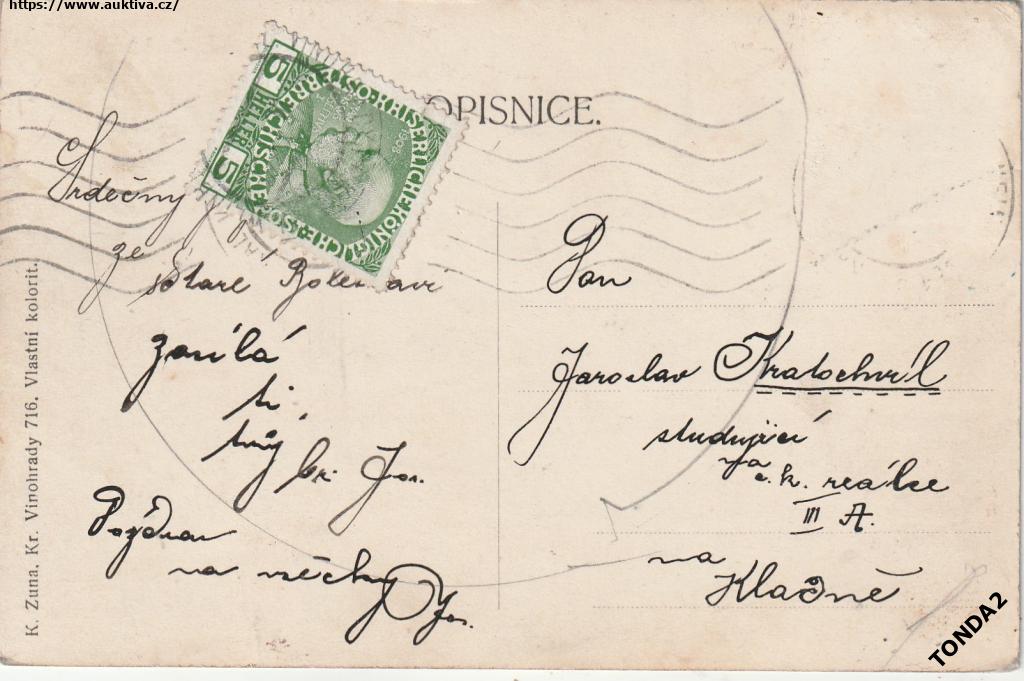 https://www.auktiva.cz/
DOPISNICE.
KAISERLICHE KÖNIGLICHE ÖSTERREICHISCHE POST
5 HELLER 5
1908
Srdečný
ze
Staré Boleslavi
zasílá
ti
tvůj br. Jos.
Pozdrav
na všechny Jos.
Pan
Jaroslav Kratochvíl
studující
na
c. k. reálce
III A.
na
Kladně
K. Zuna, Kr. Vinohrady 716. Vlastní kolorit.
TONDA2